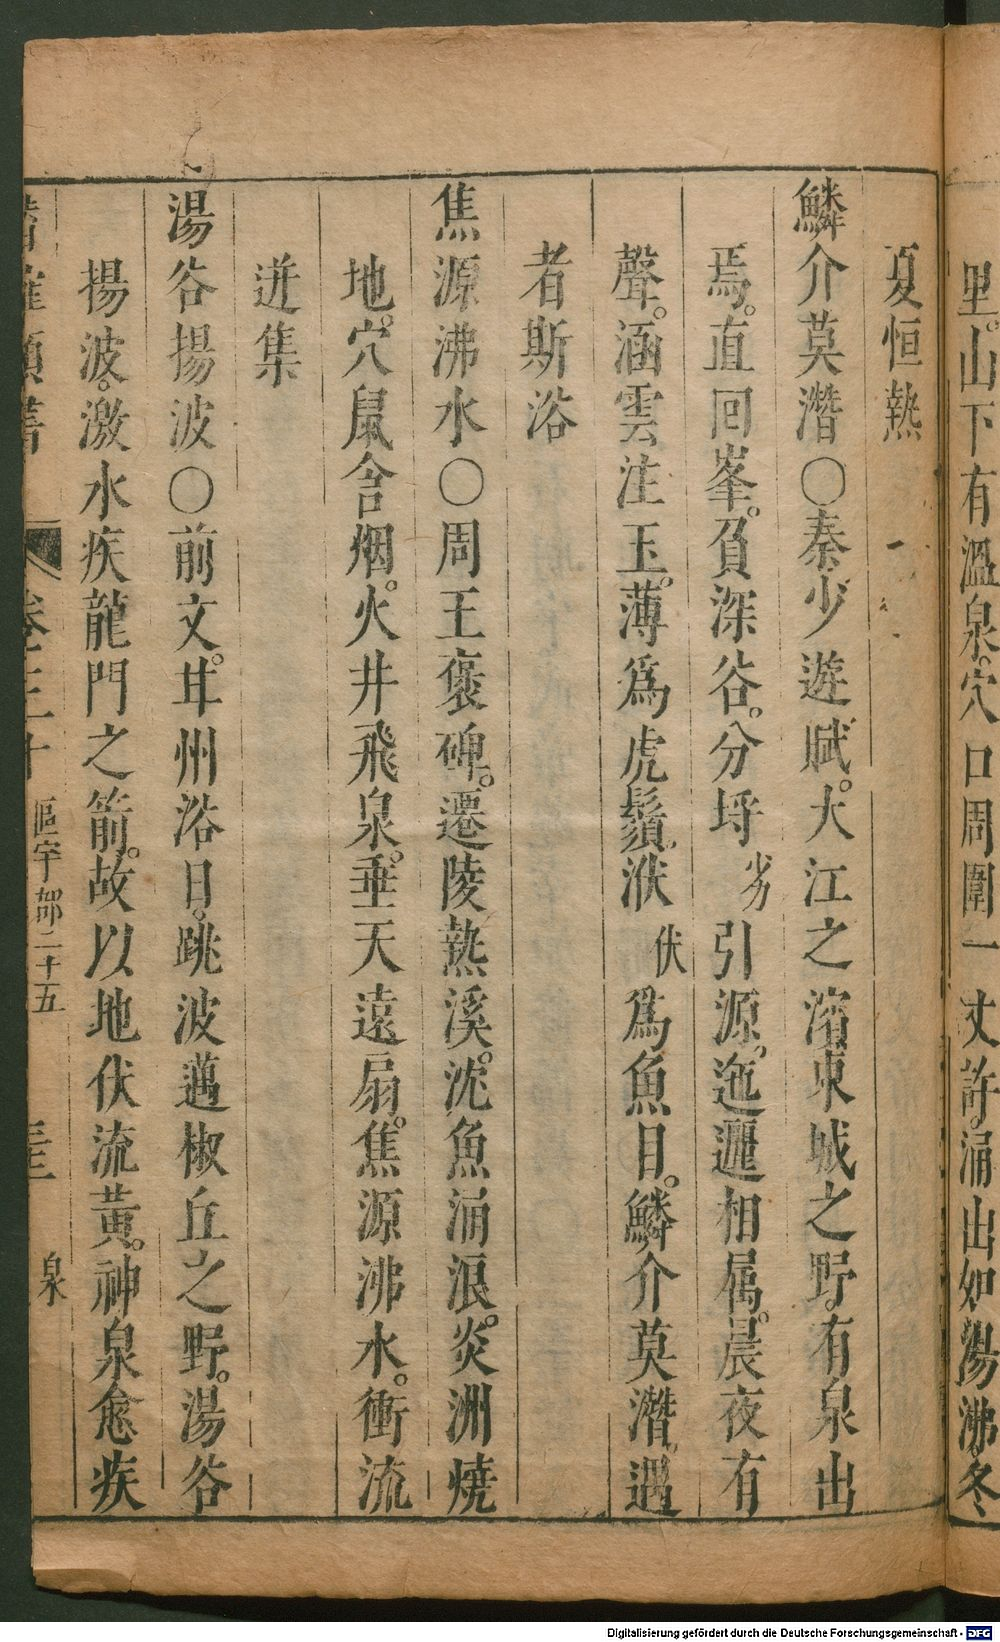 里。山下有溫泉。穴口周圍一丈許。涌出如湯沸。冬
夏恒熱
鱗介莫潛○秦少遊賦。大江之濱東城之野。有泉出
焉。直回峯。負深谷。分埒劣引源。迤邐相屬。晨夜有
聲。涵雲注玉。薄爲虎鬚。洑伏爲魚目。鱗介莫潛。遇
者斯浴
焦源沸水○周王褒碑。遷陵熱溪。沈魚涌浪。炎洲燒
地。穴鼠含烟。火井飛泉。垂天遠扇。焦源沸水。衝流
迸集
湯谷揚波○前文。甘州浴日。跳波邁椒丘之野。湯谷
揚波。激水疾龍門之箭。故以地伏流黃。神泉愈疾
類書 卷三十 區宇部二十五 泉
Digitalisierung gefördert durch die Deutsche Forschungsgemeinschaft - DFG